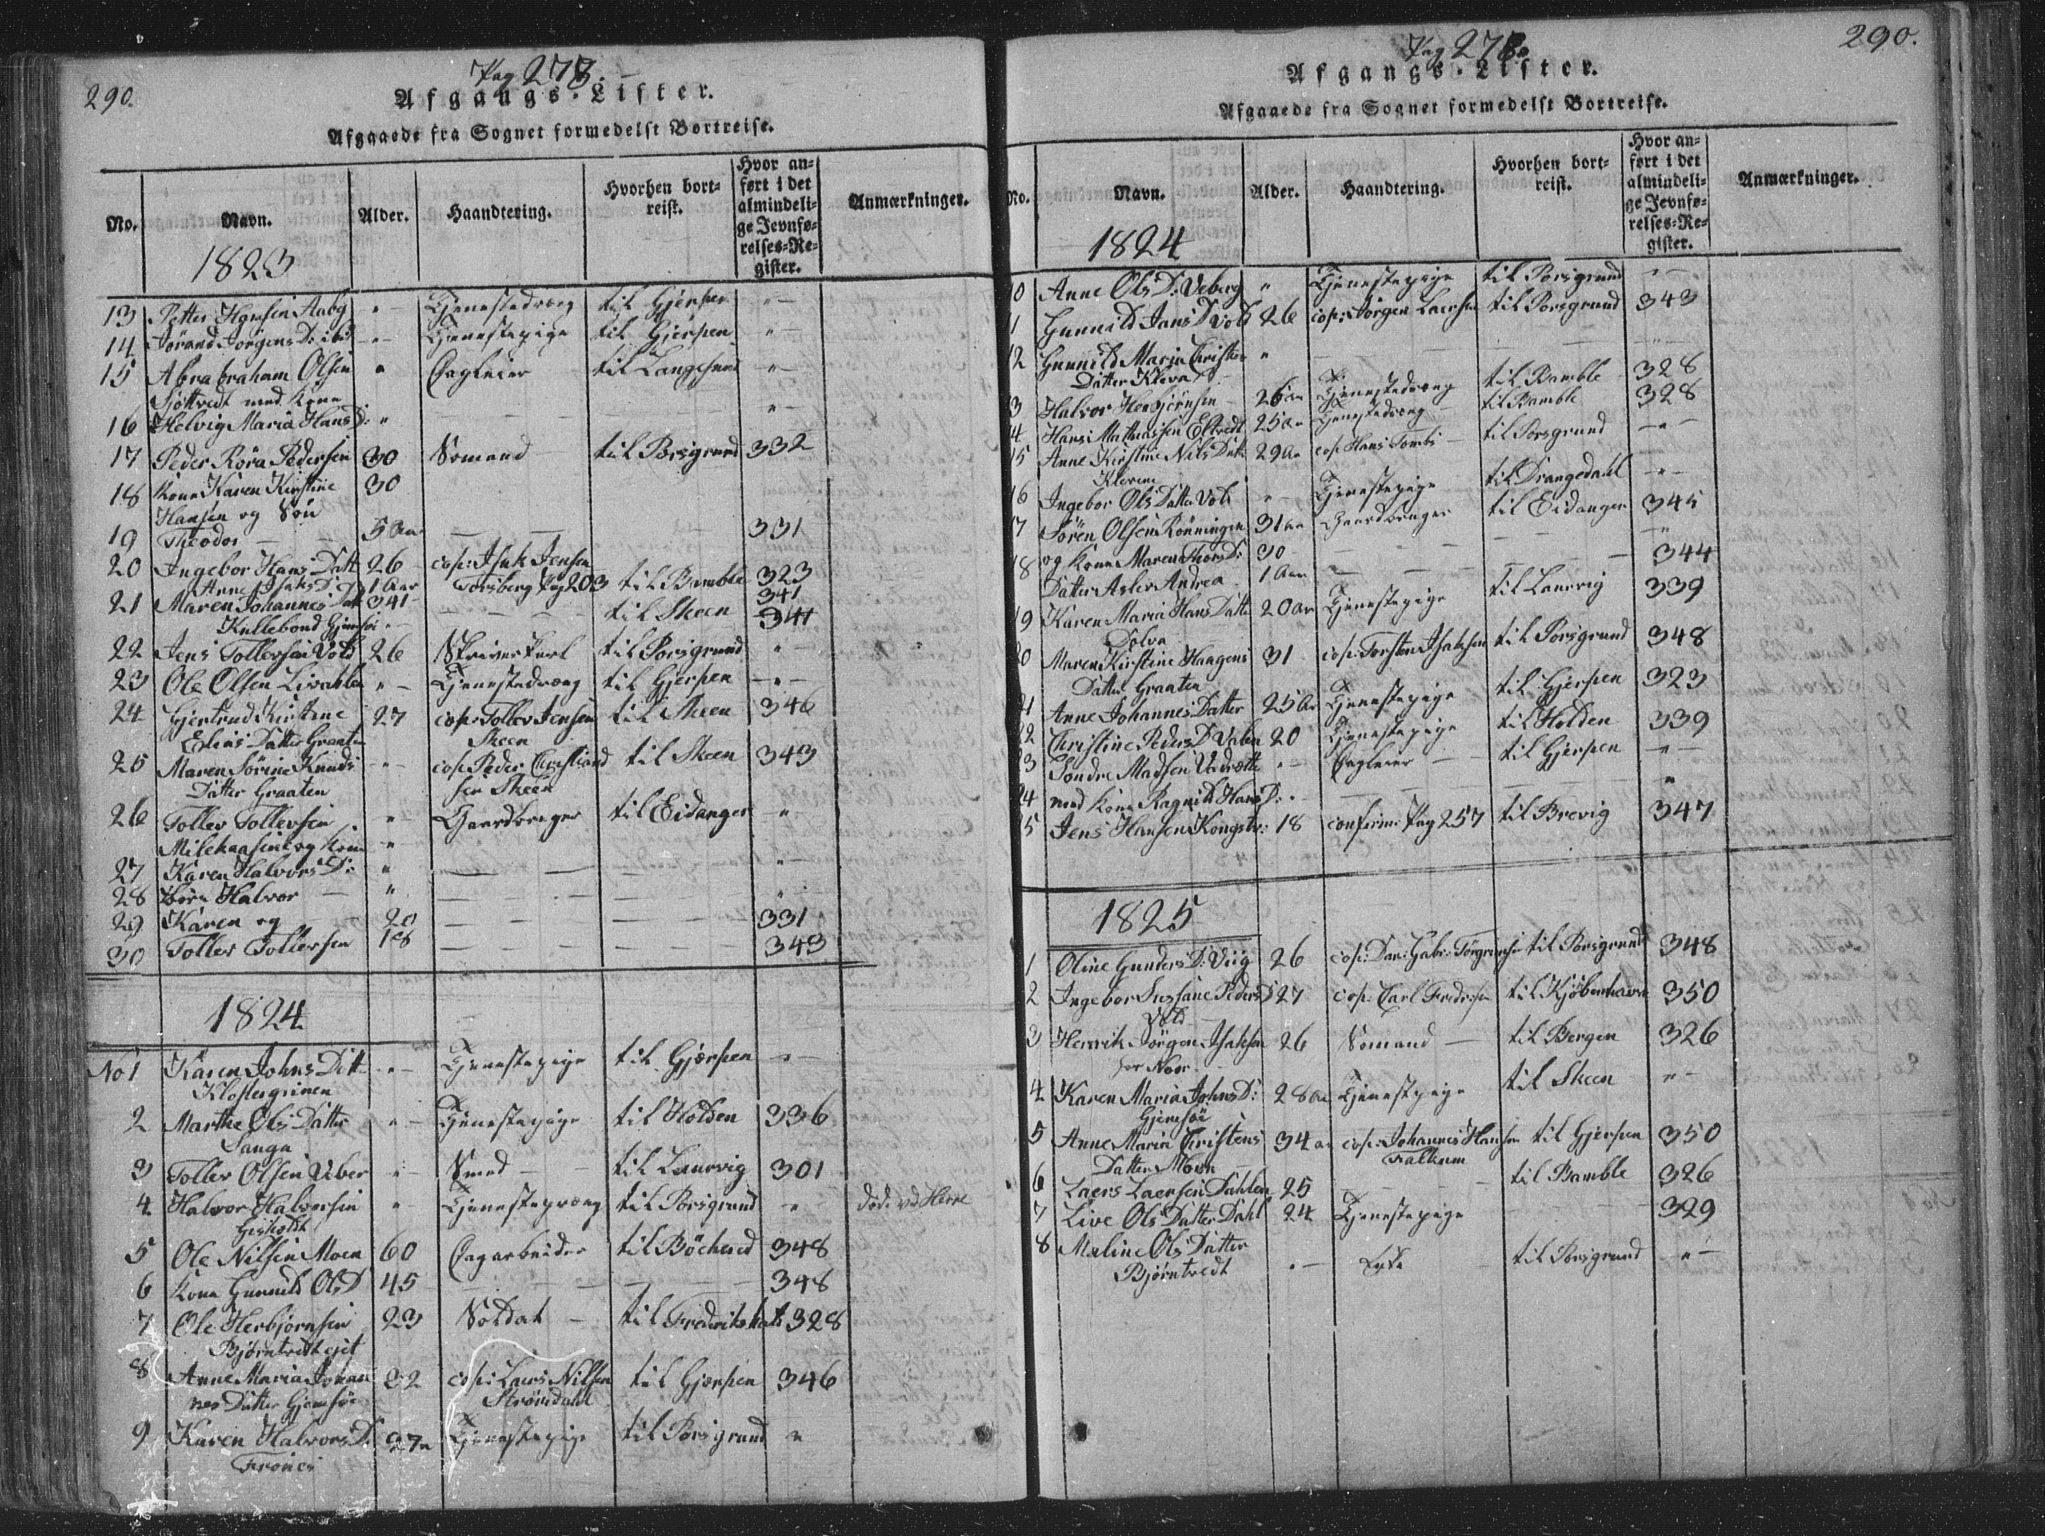 290.
Pag 278.
Afgangs-Lister.
Afgaaede fra Sognet formedelst Bortreise.
No. Navn. Alder. Haandtering. Hvorhen bortreist. Hvor anført i det almindelige Jevnførelses-Register. Anmærkninger.
1823
13 Petter Hansen Aaby " Tjenestedræng til Gjerpen "
14 Jørand Jørgens D: ibid " Tjenestepige til Gjerpen "
15 Abrabraham Olsen " Dagleier til Langesund "
Sjøttvedt med Kone
16 Helvig Maria Hans D: " "
17 Peder Röra Pedersen 30 Sømand til Porsgrund 332
18 Kone Karen Kirstine 30
Hansen og Sön
19 Theodor 5 Aar 331
20 Ingebor Hans Datt 26 cop: Isak Jensen
Anne Isaks D: 1 Aar Forsberg Pag 203 til Bamble 323
21 Maren Johannes Dat 341 341
Kullebond Gjemsöe til Skeen 341
22 Jens Tollefsen Vold 26 Skriverkarl til Porsgrund "
23 Ole Olsen Livahlen " Tjenestedræng til Gjerpen "
24 Gjertrud Kirstine 27 cop: Tollev Jensen til Skeen 346
Elias Datter Graaten Skeen
25 Maren Sörine Knuds " cop: Peder Christiand til Skeen 343
Datter Graaten sen Skeen
26 Tollev Tollevsen " Gaardbruger til Eidanger "
Milehaasen og Kone "
27 Karen Halvors D: " "
28 Börn Halvor " "
29 Karen og 20 331
30 Tollev Tollevsen 18 343
1824
No 1 Karen Johns Datt " Tjenestepige til Gjerpen "
Klostergrinen
2 Marthe Ols Datter " Tjenestepige til Holden 336
Sanga
3 Tollev Olsen Uber " Smed til Laurvig 301
4 Halvor Halvorsen " Tjenestedræng til Porsgrund " död ved Herre
Gisholt
5 Ole Nilsen Moen 60 Dagarbeider til Böchered 348
6 Kone Gunnild Ols D 45 348
7 Ole Herbjørnsen 23 Soldat til Frederikshald 328
Bjørntvedt ejet
8 Anne Maria Johan 22 cop: Laers Nilsen til Gjerpen 346
nes Datter Gjemsöe Strömdahl
9 Karen Halvors D: 27 Tjenestepige til Porsgrund "
Frones
290.
Pag 278.
Afgangs-Lister.
Afgaaede fra Sognet formedelst Bortreise.
No. Navn. Alder. Haandtering. Hvorhen bortreist. Hvor anført i det almindelige Jevnførelses-Register. Anmærkninger.
1824
10 Anne Ols D: Veberg " Tjenestepige til Porsgrund "
11 Gunnild Jans D Vold 26 cop: Jörgen Laersen til Porsgrund 343
12 Gunnild Maria Christen "
Datter Kleva
13 Halvor Herbjörnsen 26 aar Tjenestedræng til Bamble 328
14 Hans Mathiasen Eltvedt 25 aar Tjenestedræng til Bamble 328
15 Anne Kirstine Nils Datt 29 Aar cop: Hans Tombs til Porsgrund "
Kleven
16 Ingebor Ols Datter Vold " Tjenestepige til Drangedahl "
17 Sören Olsen Rönningen 31 aar Gaardbruger til Eidanger 345
og Kone Maren Thors D: 30 "
18 Datter Asler Andrea 1 Aar 344
19 Karen Maria Hans Datter 20 ar Tjenestepige til Laurvig 339
Dolva
20 Maren Kirstine Haagens 31 cop: Torsten Isaksen til Porsgrund 348
Datter Graaten
21 Anne Johannes Datter 25 Ar Tjenestepige til Gjerpen 323
22 Christine Peders D Valen 20 Tjenestepige til Holden 339
23 Sondre Madsen Vadrette " Dagleier til Gjerpen "
24 med Kone Ragnild Hans D: " "
25 Jens Hansen Kongstv: 18 confirm: Pag 257 til Brevig 347
1825
1 Oline Gunders D: Viig 26 cop: Dan: Gabr: Törgersen til Porsgrund 348
2 Ingebor Susane Peders D 27 cop: Carl Fredrisen til Kjöbenhavn 350
Vold
3 Henrik Jörgen Isaksen 26 Sømand til Bergen 326
ser Moer
4 Karen Maria Johns D: 28 aar Tjenestepige til Skeen "
Gjemsöe
5 Anne Maria Kristens 34 aar cop: Johannes Hansen til Gjerpen 350
Datter Moen Falkum
6 Laers Laersen Dahlen 25 til Bamble 326
7 Live Ols Datter Dahl 24 Tjenestepige 329
8 Maline Ols Datter
Bjørntvedt " til Porsgrund "